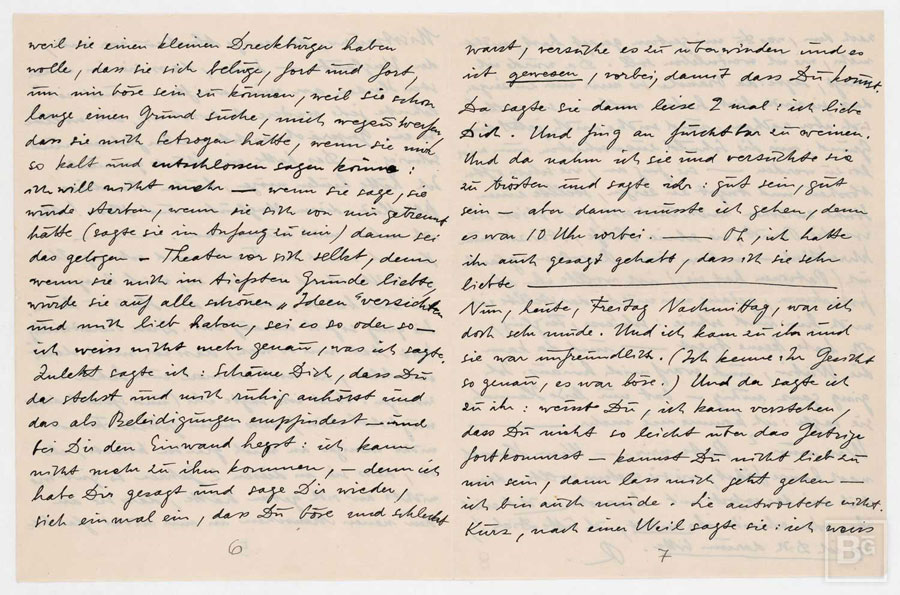 weil sie einen kleinen Dreckbürger haben
wolle, dass sie sich belüge, fort und fort,
um mir böse sein zu können, weil sie schon
lange einen Grund suche, mich wegzuwerfen,
dass sie mich betrogen hätte, wenn sie mir
so kalt und entschlossen sagen könne:
ich will nicht mehr — wenn sie sage, sie
würde sterben, wenn sie sich von mir getrennt
hätte (sagte sie im Anfang zu mir) dann sei
das gelogen – Theater vor sich selbst, denn
wenn sie mich im tiefsten Grunde liebte,
würde sie auf alle schönen „Ideen" verzichten
und mich lieb haben, sei es so oder so —
ich weiss nicht mehr genau, was ich sagte.
Zuletzt sagte ich: schäme Dich, dass Du
da stehst und mich ruhig anhörst und
das als Beleidigungen empfindest — und
bei Dir den Einwand hegst: ich kann
nicht mehr zu ihm kommen, – denn ich
habe Dir gesagt und sage Dir wieder,
sieh einmal ein, dass Du böse und schlecht
6
warst, versuche es zu überwinden und es
ist gewesen, vorbei, damit dass Du kommst.
Da sagte sie dann leise 2 mal: ich liebe
Dich. Und fing an furchtbar zu weinen.
Und da nahm ich sie und versuchte sie
zu trösten und sagte ihr: gut sein, gut
sein – aber dann musste ich gehen, denn
es war 10 Uhr vorbei. — Oh, ich hatte
ihr auch gesagt gehabt, dass ich sie sehr
liebte —
Nun, heute, Freitag Nachmittag, war ich
doch sehr müde. Und ich kam zu ihr und
sie war unfreundlich. (Ich kenne ihr Gesicht
so genau, es war böse.) Und da sagte ich
zu ihr: weisst Du, ich kann verstehen,
dass Du nicht so leicht über das Gestrige
fortkommst – kannst Du nicht lieb zu
mir sein, dann lass mich jetzt gehen —
ich bin auch müde. Sie antwortete nicht.
Kurz, nach einer Weil sagte sie: ich weiss
7
BG